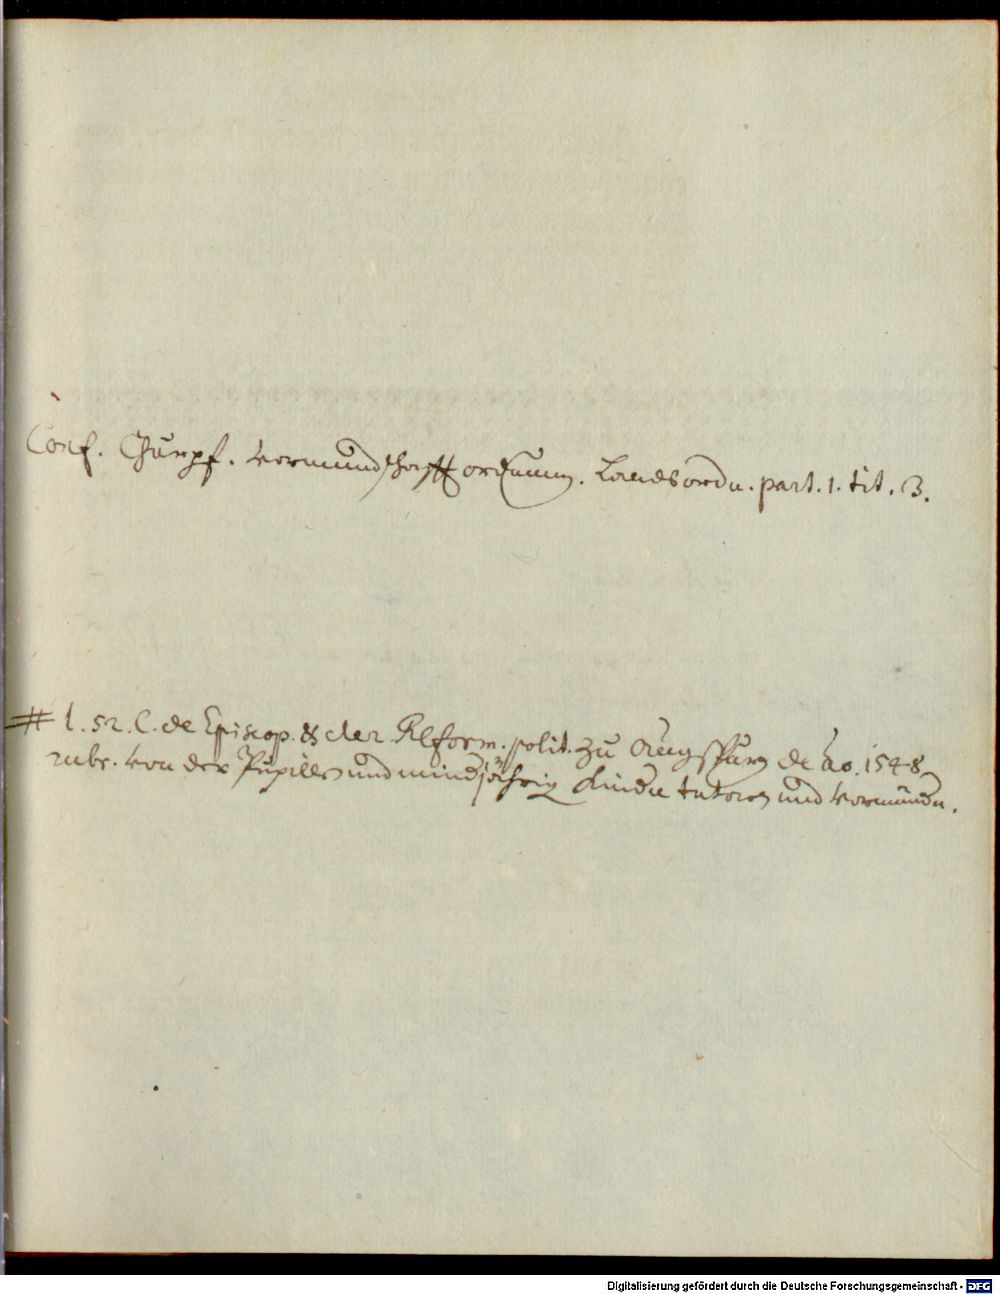 Conf. Churpf. Vormundschafft ordnung. Landsordn. part. 1. tit. 3.
# l. 52. C. de Episcop. & cler. Reform. polit. zu Augspurg de Ao. 1548
rubr. Von der Pupillen und mindjährig Kinder tutoren und Vormünder.
Digitalisierung gefördert durch die Deutsche Forschungsgemeinschaft - DFG